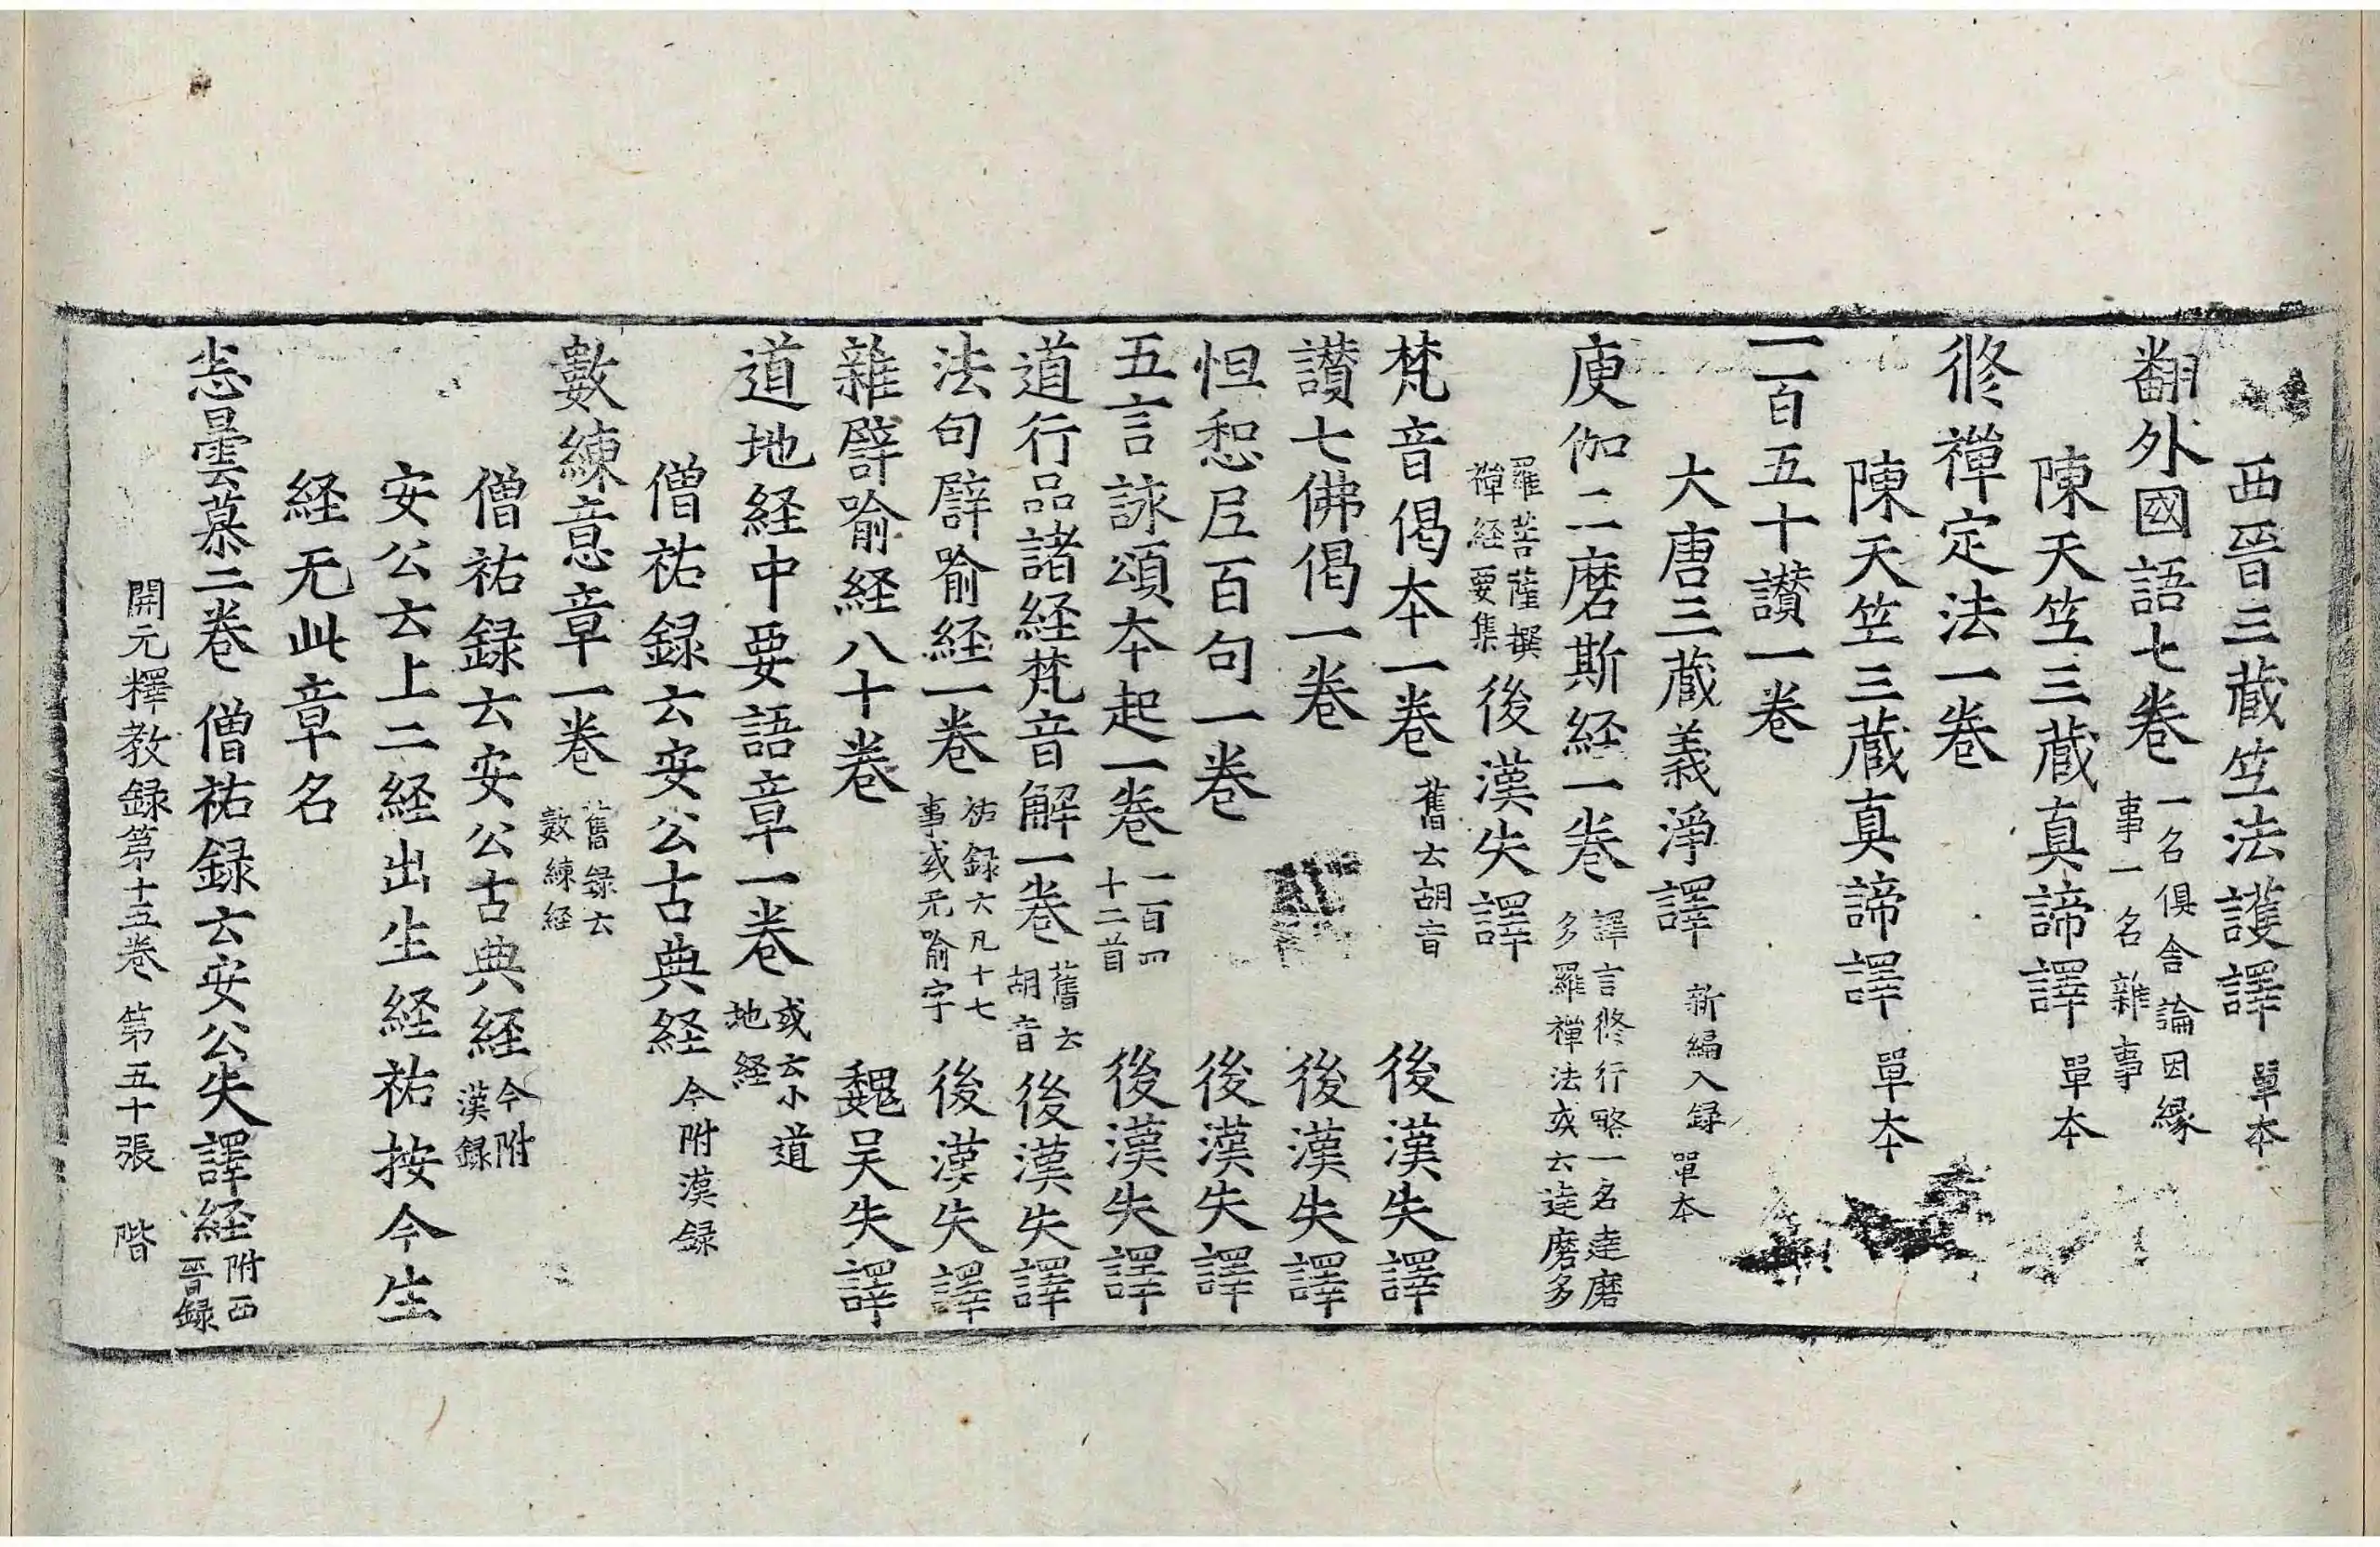 西晉三藏竺法護譯 單本
翻外國語七卷 一名俱舍論因緣事一名雜事
陳天竺三藏真諦譯 單本
修禪定法一卷
陳天竺三藏真諦譯 單本
一百五十讚一卷
大唐三藏義淨譯 新編入録 單本
庾伽二磨斯経一卷 譯言修行略一名達磨多羅禪法或云達磨多
羅菩薩撰禪経要集 後漢失譯
梵音偈本一卷 舊云胡音 後漢失譯
讚七佛偈一卷 後漢失譯
怛惒尼百句一卷 後漢失譯
五言詠頌本起一卷 一百四十二首 後漢失譯
道行品諸経梵音解一卷 舊云胡音 後漢失譯
法句譬喻経一卷 祐録云凡十七事或无喻字 後漢失譯
雜譬喻経八十卷 魏吴失譯
道地経中要語章一卷 或云小道地経
僧祐録云安公古典経 今附漢録
數練意章一卷 舊録云數練経
僧祐録云安公古典経 今附漢録
安公云上二経出生経祐按今生
経无此章名
恙曇慕二卷 僧祐録云安公失譯経 附西晉録
開元釋教録第十五卷 第五十張 階